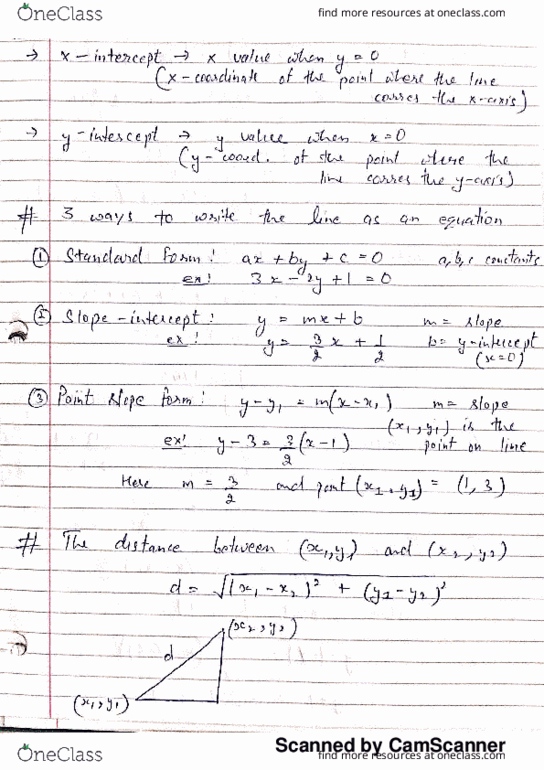 OneClass
find more resources at oneclass.com
→ x-intercept → x value when y=0
(x-coordinate of the point where the line
corses the x-axis)
→ y-intercept → y value when x=0
(y-coord. of the point where the
line corses the y-axis)
# 3 ways to write the line as an equation
① Standard form: ax + by + c = 0 a,b,c constants
ex: 3x - 2y + 1 = 0
② Slope-intercept: y = mx + b m = slope
ex: y = 3/2 x + 1/2 b = y-intercept
(x=0)
③ Point slope form: y - y₁ = m(x - x₁) m = slope
(x₁, y₁) is the
ex: y - 3 = 3/2 (x - 1) point on line
Here m = 3/2 and point (x₁, y₁) = (1, 3)
# The distance between (x₁, y₁) and (x₂, y₂)
d = √(x₁ - x₂)² + (y₁ - y₂)²
(x₂, y₂)
d
(x₁, y₁)
Scanned by CamScanner
OneClass
find more resources at oneclass.com